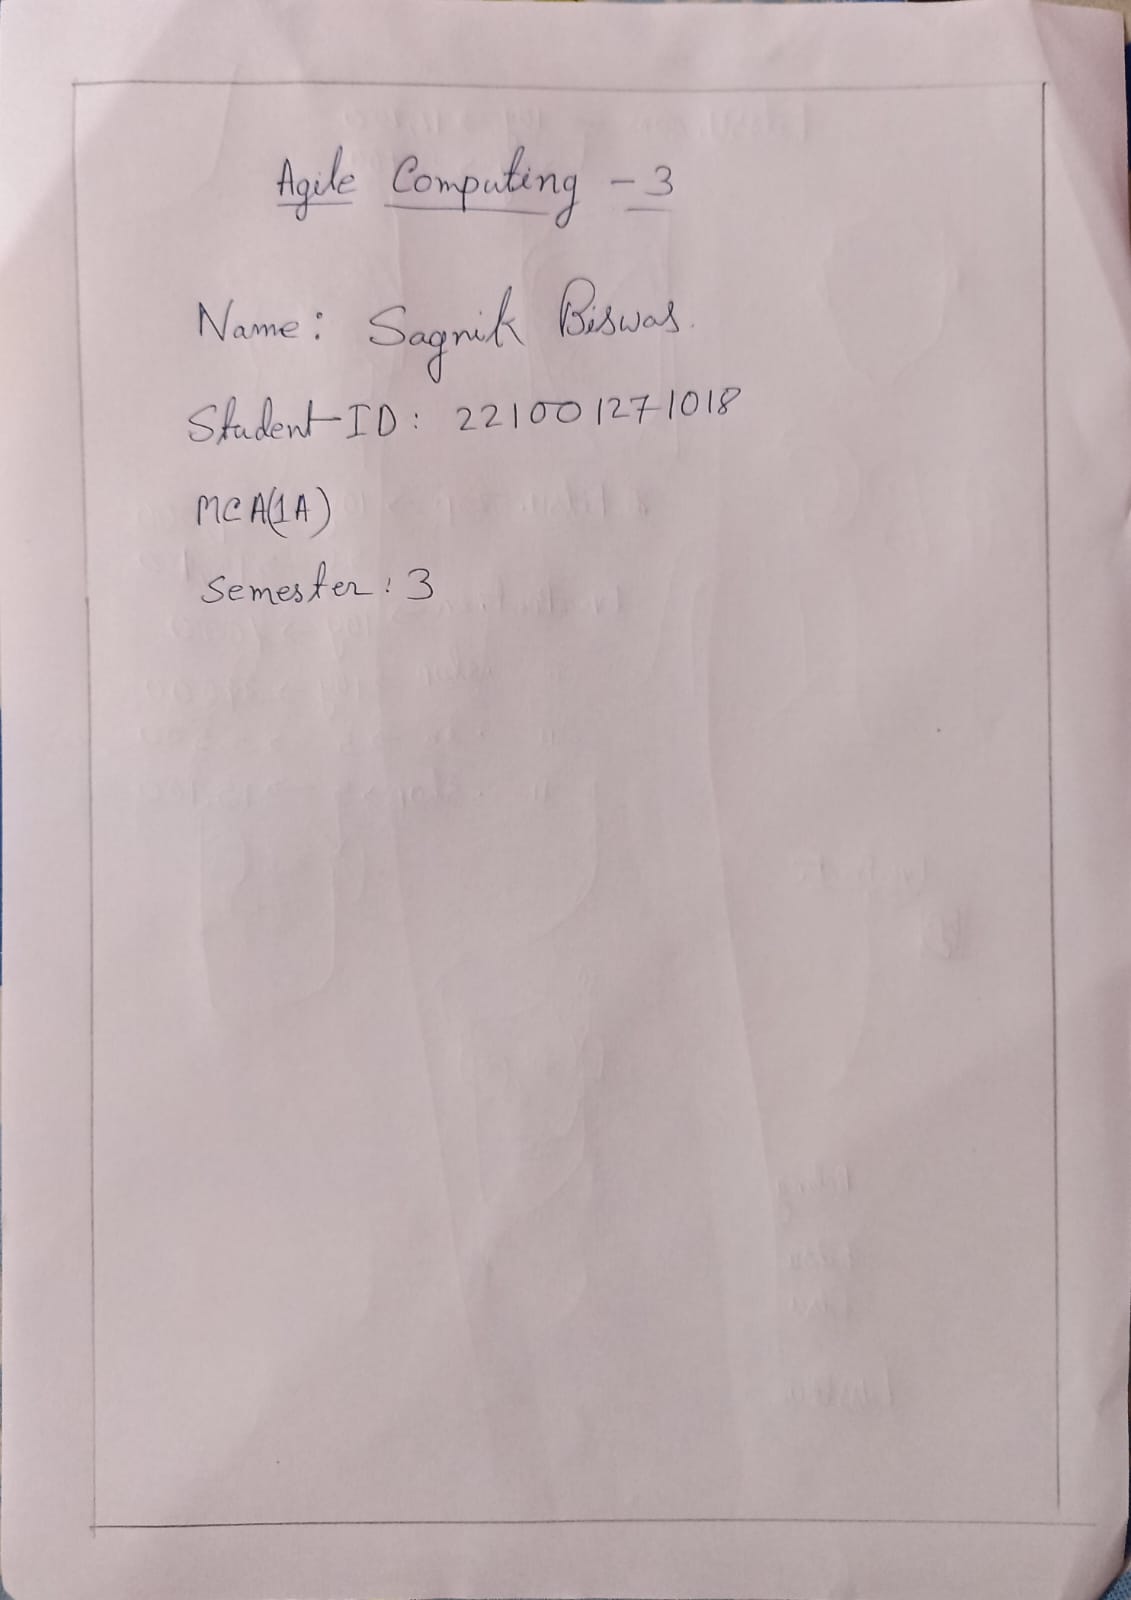 Agile Computing - 3
Name: Sagnik Biswas.
Student-ID: 221001271018
MCA(1A)
Semester: 3